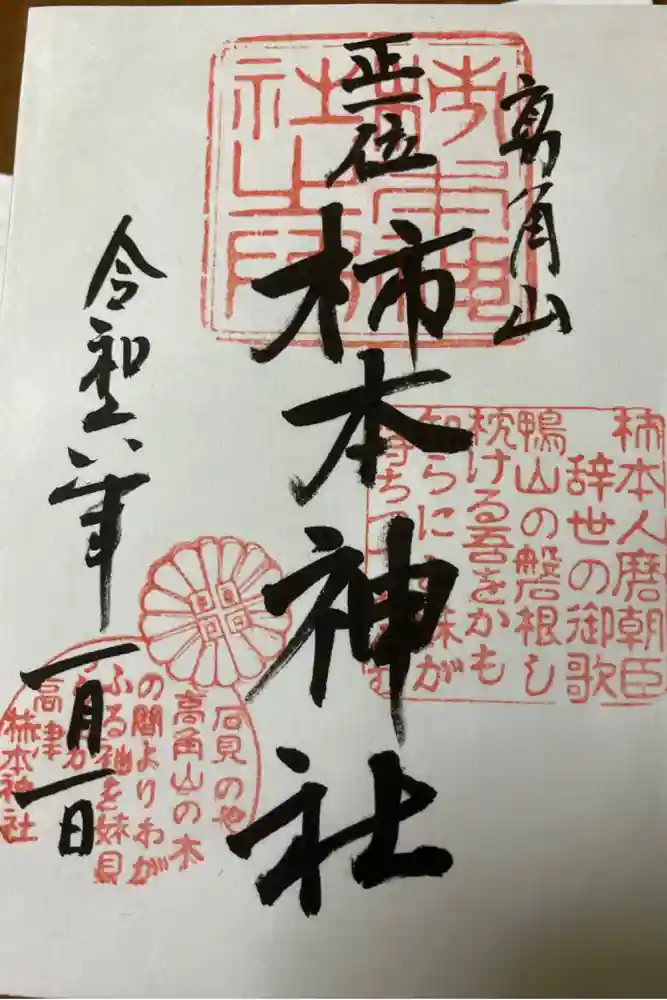 高角山
正一位
柿本神社
令和六年
一月一日
柿本人麿朝臣
辞世の御歌
鴨山の磐根し
枕ける吾をかも
知らに 妹が
待ちつ
石見の也
高角山の木
の間よりわが
ふる袖を妹見
高津
柿本神社